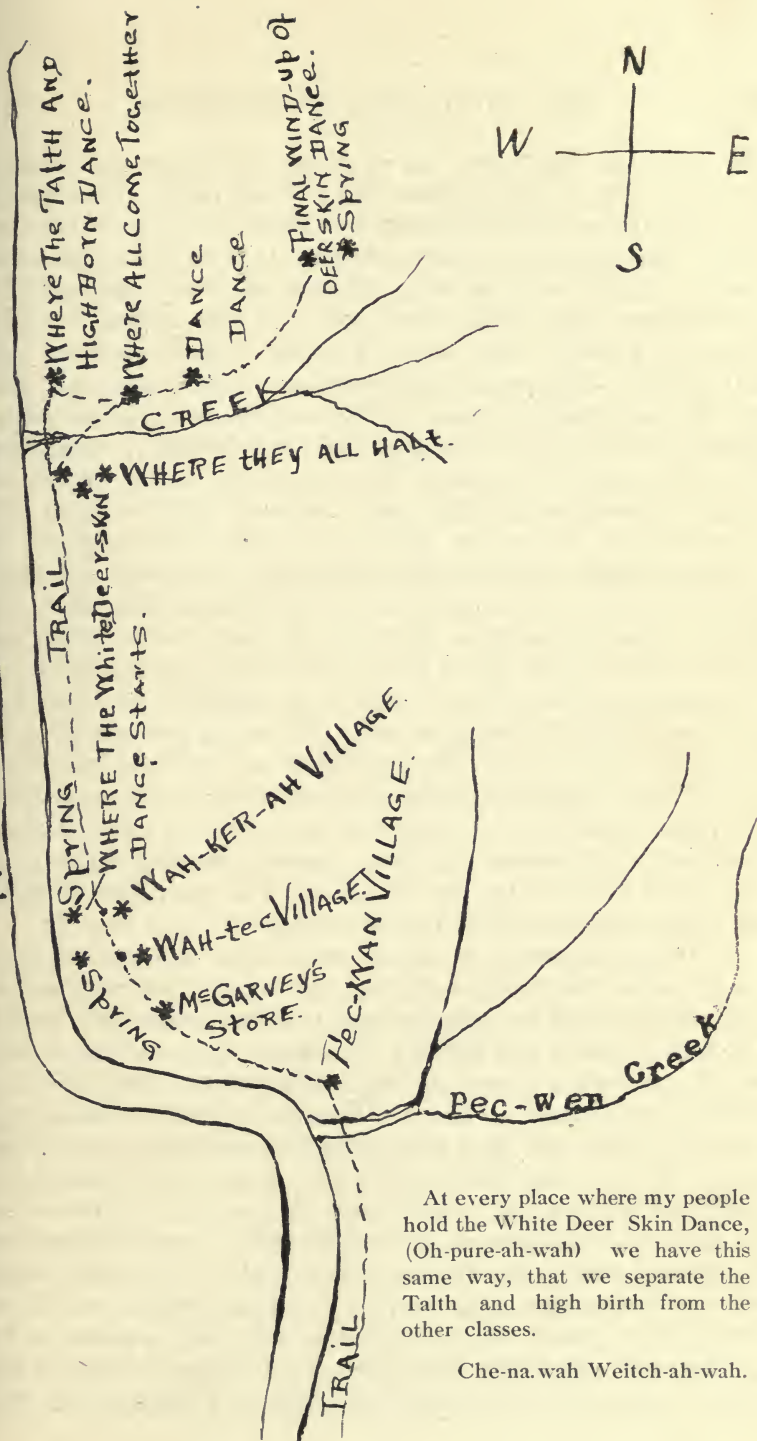 Where The Talth AND
High Born Dance.
Where All Come Together
Dance
Dance
Final Wind-up of
Deerskin Dance.
Spring
N
W
E
S
Creek
Where they all Halt.
Trail
Spring
Where The White Deer-skin
Dance Starts.
Spring
Wah-ker-ah Village.
Wah-tec Village.
McGarvey's
Store.
Pec-wan Village.
Pec-wen Creek
Trail
At every place where my people
hold the White Deer Skin Dance,
(Oh-pure-ah-wah) we have this
same way, that we separate the
Talth and high birth from the
other classes.
Che-na.wah Weitch-ah-wah.